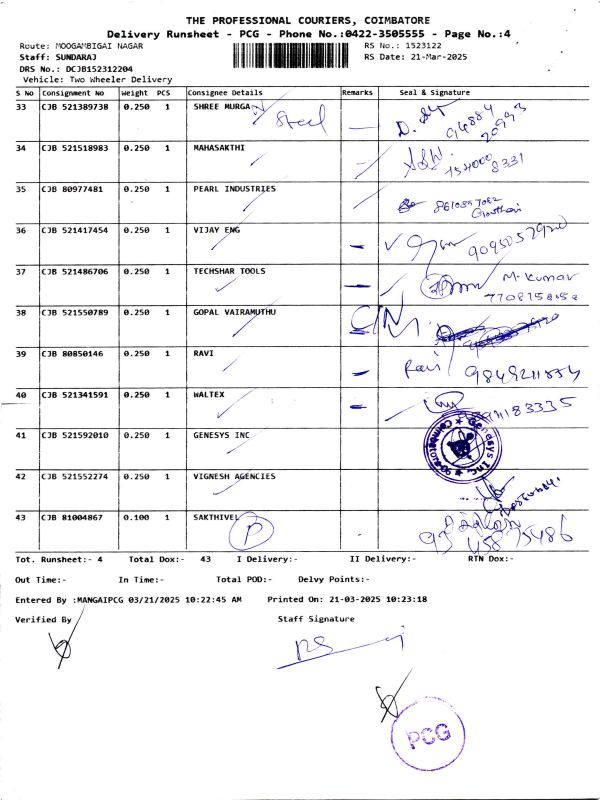 THE PROFESSIONAL COURIERS, COIMBATORE
Delivery Runsheet - PCG - Phone No.:0422-3505555 - Page No.:4
Route: MOOGAMBIGAI NAGAR RS No.: 1523122
Staff: SUNDARAJ RS Date: 21-Mar-2025
DRS No.: DCJB152312204
Vehicle: Two Wheeler Delivery
S No Consignment No Weight PCS Consignee Details Remarks Seal & Signature
33 CJB 521389738 0.250 1 SHREE MURGAN Steel 94884 20993
34 CJB 521518983 0.250 1 MAHASAKTHI 8331
35 CJB 80977481 0.250 1 PEARL INDUSTRIES
36 CJB 521417454 0.250 1 VIJAY ENG
37 CJB 521486706 0.250 1 TECHSHAR TOOLS M. Kumar
38 CJB 521550789 0.250 1 GOPAL VAIRAMUTHU
39 CJB 80850146 0.250 1 RAVI Ravi
40 CJB 521341591 0.250 1 WALTEX
41 CJB 521592010 0.250 1 GENESYS INC Genesys Inc. Coimbatore
42 CJB 521552274 0.250 1 VIGNESH AGENCIES
43 CJB 81004867 0.100 1 SAKTHIVEL P
Tot. Runsheet:- 4 Total Dox:- 43 I Delivery:- II Delivery:- RTN Dox:-
Out Time:- In Time:- Total POD:- Delvy Points:-
Entered By :MANGAIPCG 03/21/2025 10:22:45 AM Printed On: 21-03-2025 10:23:18
Verified By Staff Signature
PCG